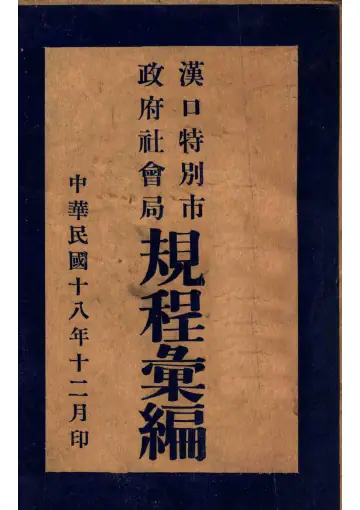 漢口特別市
政府社會局
規程彙編
中華民國十八年十二月印